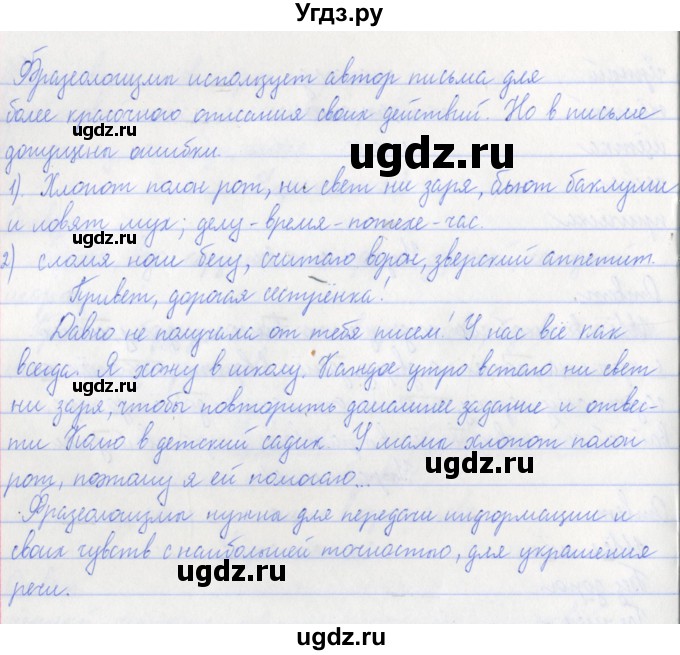 Угдз.ру
Фразеологизмы использует автор письма для
более красочного описания своих действий. Но в письме
допущены ошибки.
1) Хлопот полон рот, ни свет ни заря, бьют баклуши
и ловят мух; делу-время-потехе-час.
2) сломя ноги бегу, считаю ворон, зверский аппетит.
Привет, дорогая сестрёнка!
Давно не получала от тебя писем! У нас всё как
всегда. Я хожу в школу. Каждое утро встаю ни свет
ни заря, чтобы повторить домашнее задание и отвес-
ти Колю в детский садик. У мамы хлопот полон
рот, поэтому я ей помогаю...
Фразеологизмы нужны для передачи информации и
своих чувств с наибольшей точностью, для украшения
речи.
ugdz.ru
ugdz.ru
ugdz.ru
ugdz.ru
ugdz.ru
ugdz.ru
ugdz.ru
ugdz.ru
ugdz.ru
ugdz.ru